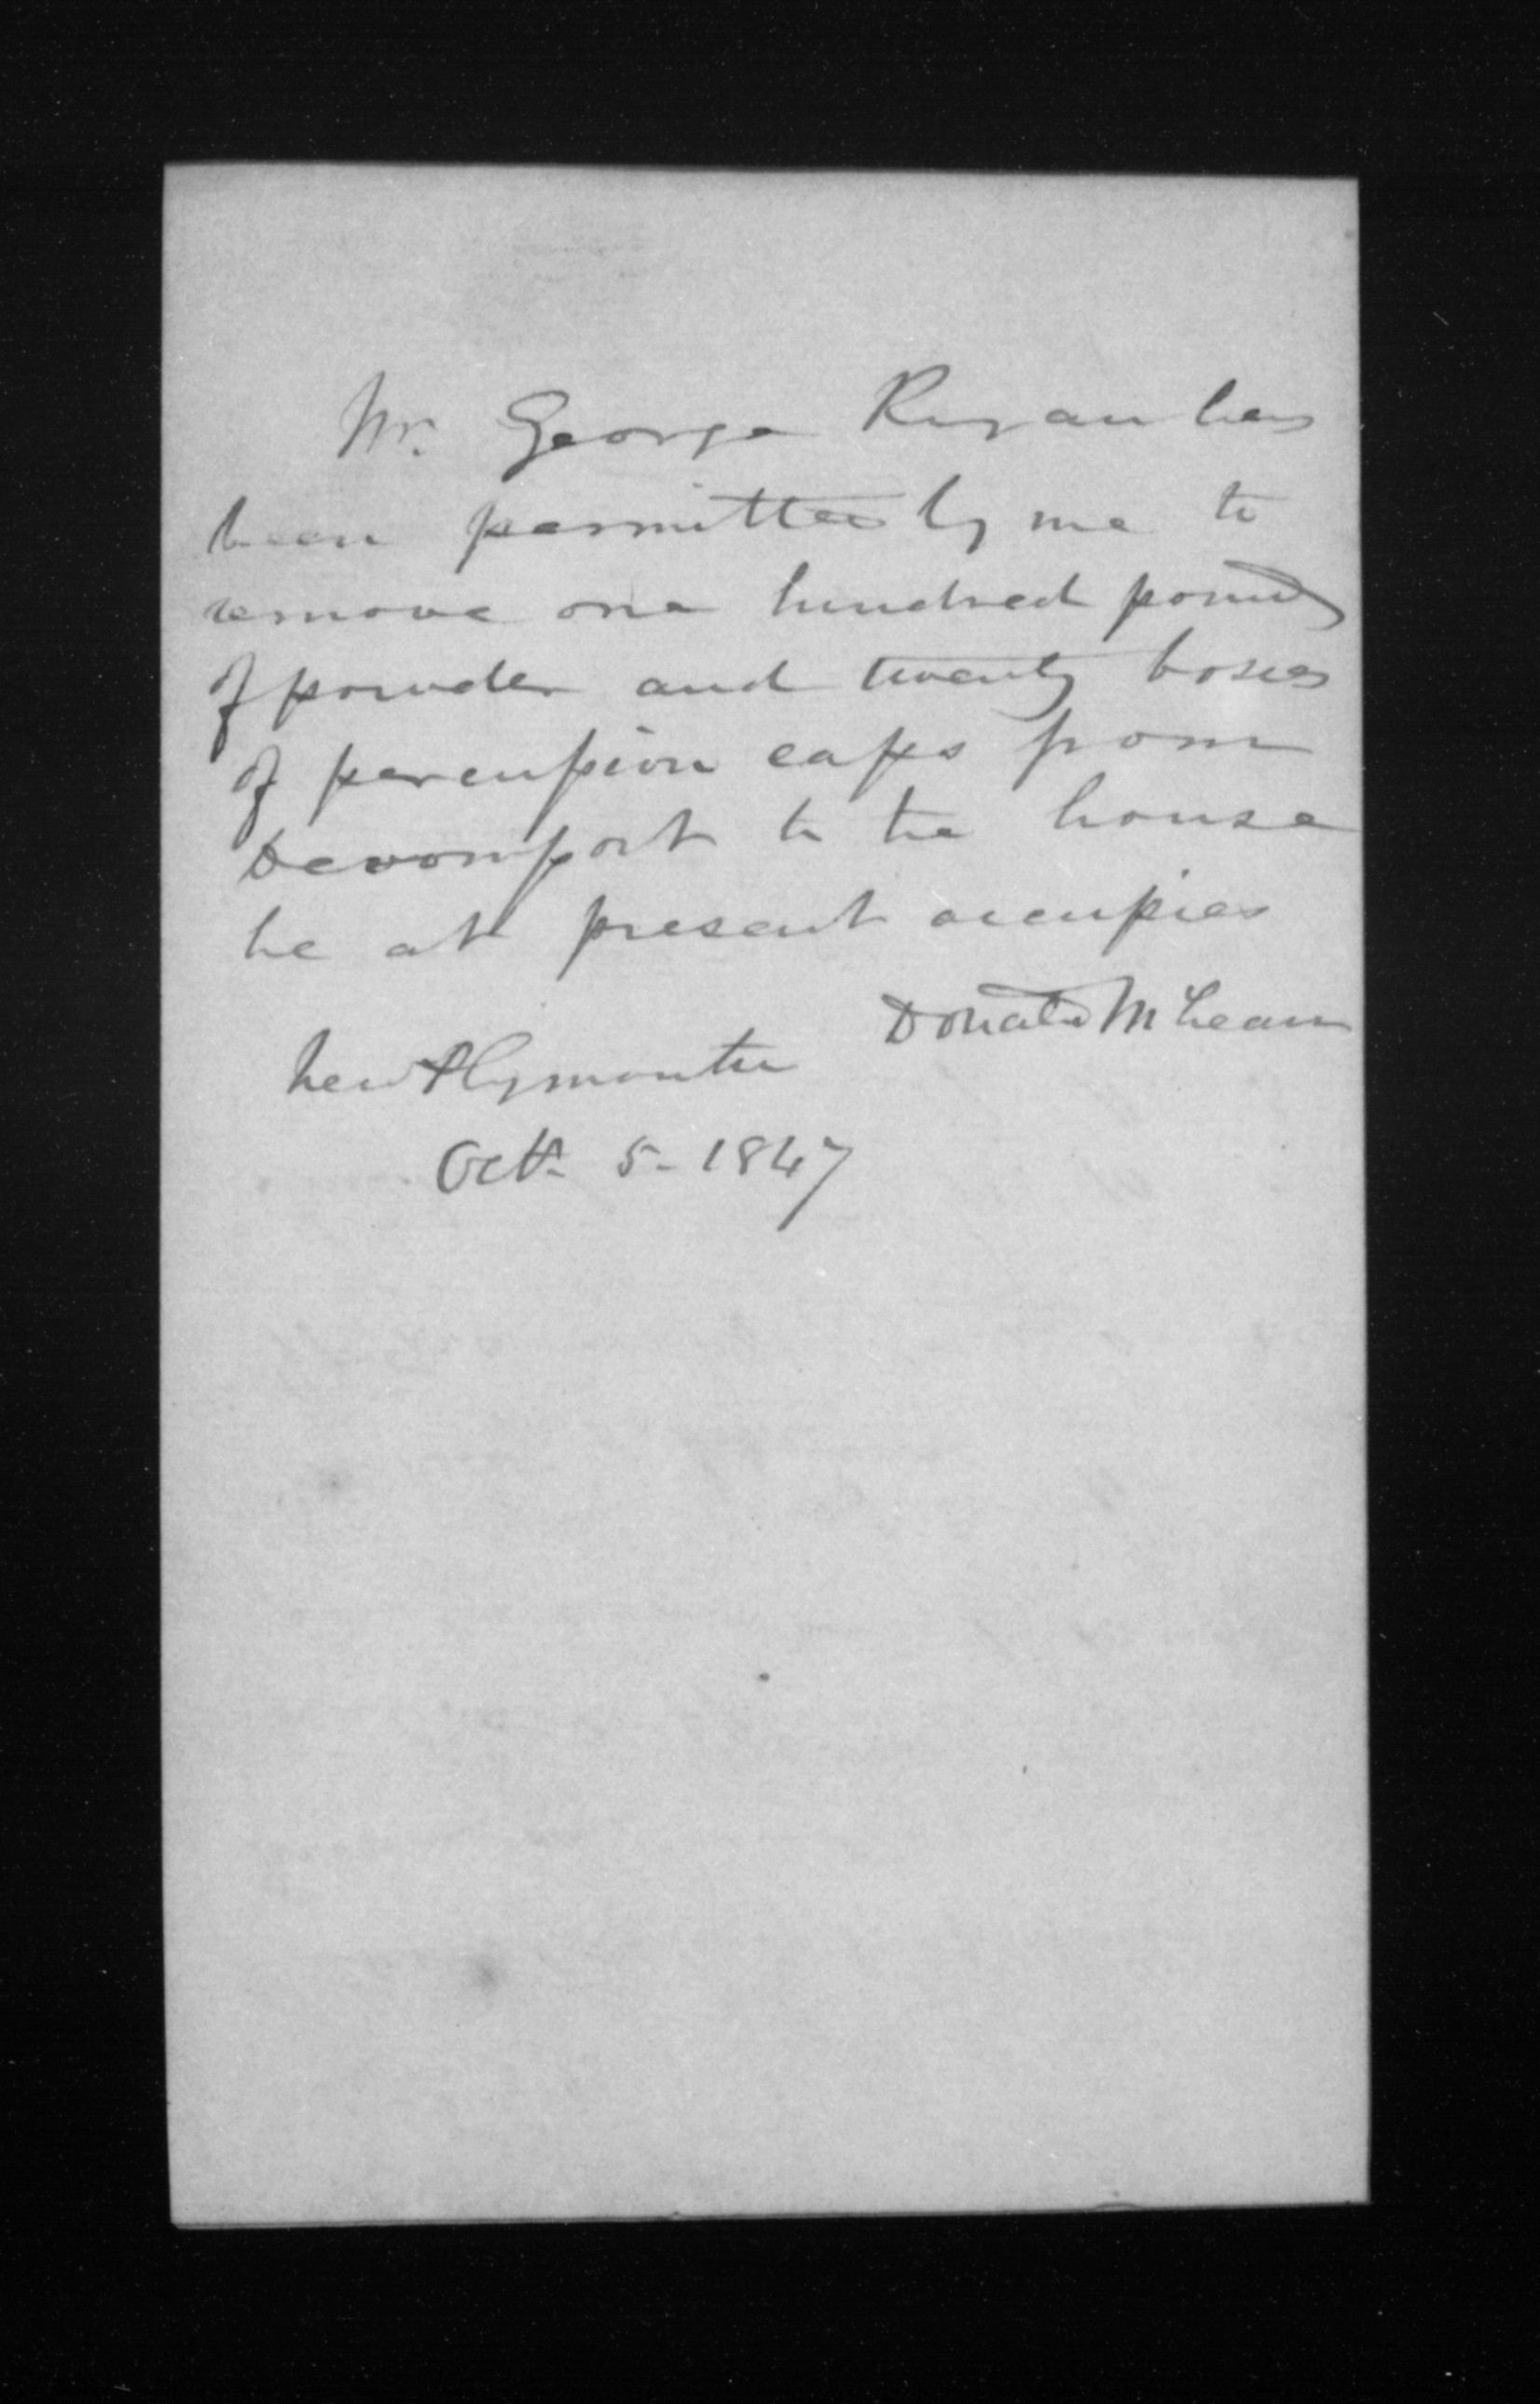 Mr. George Ryan has
been permitted by me to
remove one hundred pounds
of powder and twenty boxes
of percussion caps from
Devonport to the house
he at present occupies
Donald McLean
New Plymouth
Octr. 5 - 1847